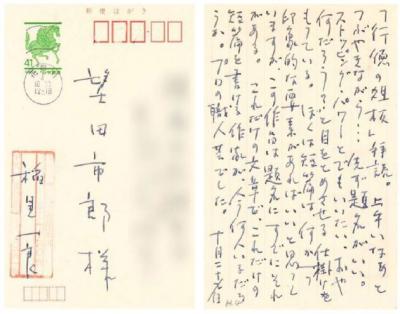 郵便はがき
41
望田市郎様
稲見一良
「行徳の短板」拝読。上手いなあと
つぶやきながら…先ず題名がいい。
ストッピング・パワーとでもいいたい、おや
何だろうと目をとめさせる仕掛けを
もっている。ぼくは短篇は何か
印象的な要素があればいいと思って
いますが、この作品は題名にすでにそれ
がある。これだけの文章でこれだけの
短篇を書ける作家が今何人いるだろ
うか。プロの職人芸でした。
十月二十